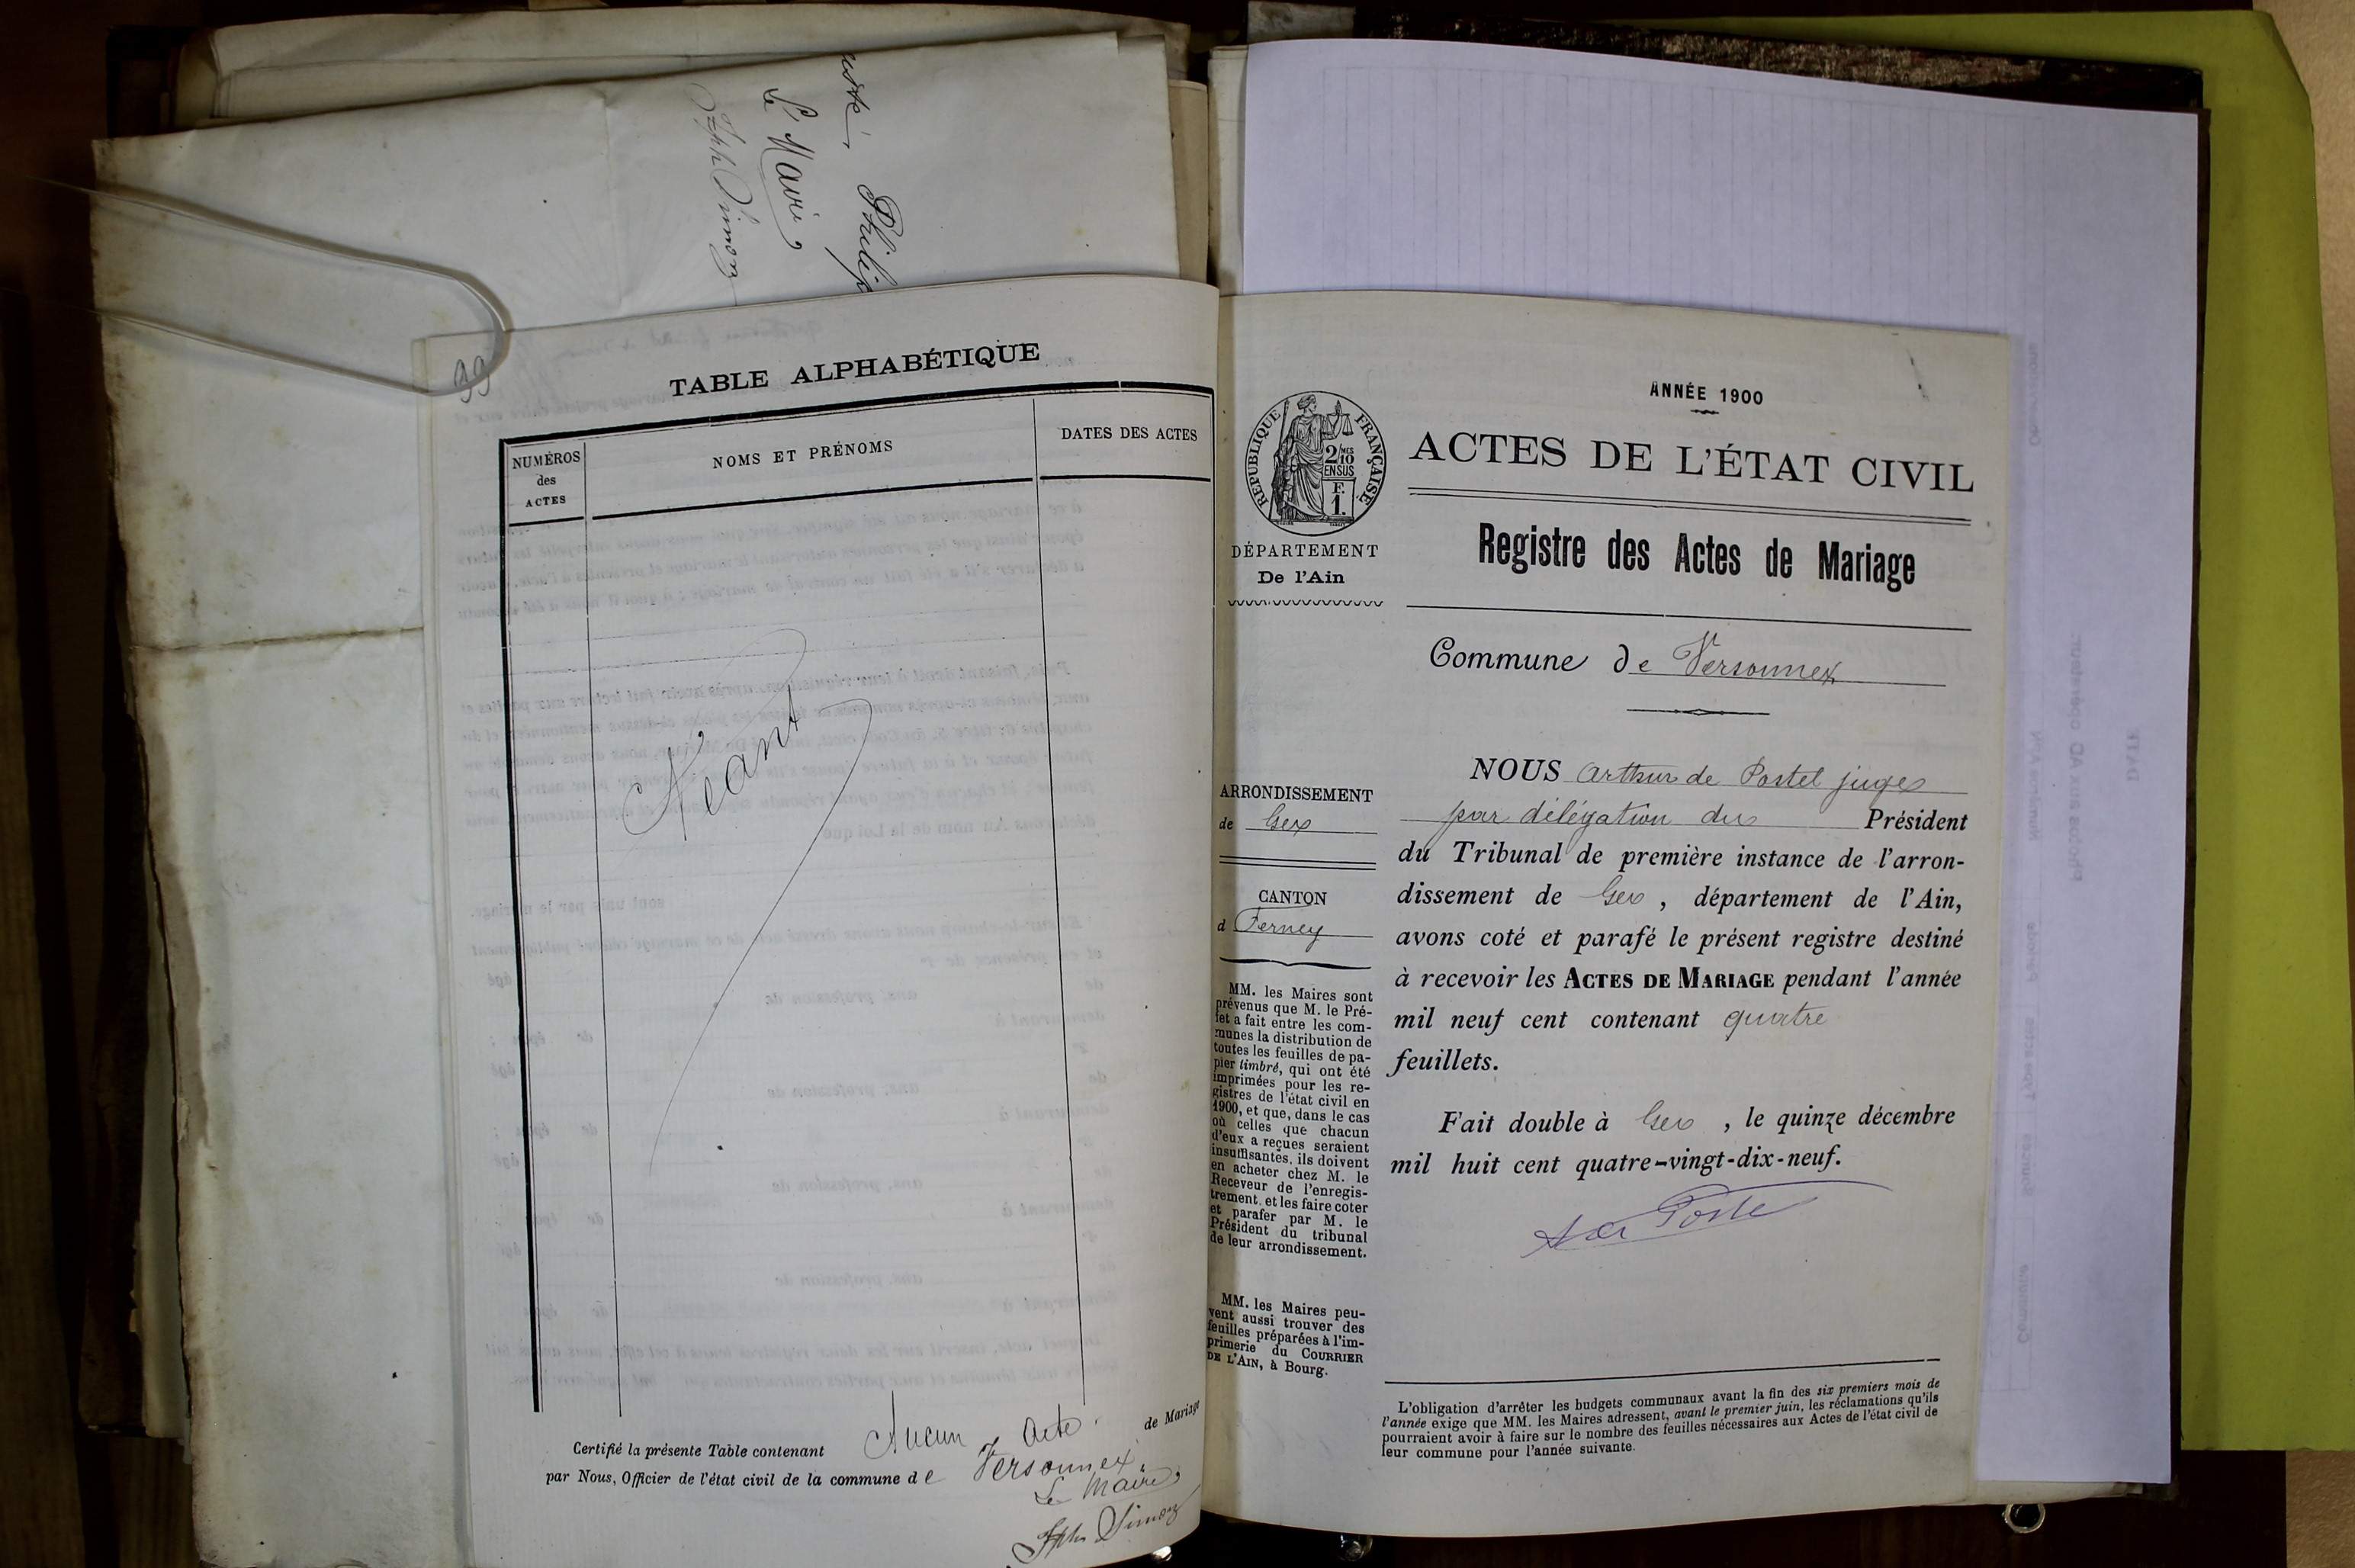 Philip
Le Maire
99
TABLE ALPHABÉTIQUE
NUMÉROS
des
ACTES
NOMS ET PRÉNOMS
DATES DES ACTES
Néant
Certifié la présente Table contenant Aucun Acte de Mariage
par Nous, Officier de l'état civil de la commune de Versonnex.
Le Maire
ANNÉE 1900
RÉPUBLIQUE FRANÇAISE
2/10 MES
EN SUS
F.
1.
ACTES DE L'ÉTAT CIVIL
DÉPARTEMENT
De l'Ain
Registre des Actes de Mariage
Commune de Versonnex
ARRONDISSEMENT
de Gex
CANTON
d Ferney
MM. les Maires sont
prévenus que M. le Pré-
fet a fait entre les com-
munes la distribution de
toutes les feuilles de pa-
pier timbré, qui ont été
imprimées pour les re-
gistres de l'état civil en
1900, et que, dans le cas
où celles que chacun
d'eux a reçues seraient
insuffisantes, ils doivent
en acheter chez M. le
Receveur de l'enregis-
trement, et les faire coter
et parafer par M. le
Président du tribunal
de leur arrondissement.
MM. les Maires peu-
vent aussi trouver des
feuilles préparées à l'im-
primerie du COURRIER
DE L'AIN, à Bourg.
NOUS Arthur de Postel juge
par délégation du Président
du Tribunal de première instance de l'arron-
dissement de Gex, département de l'Ain,
avons coté et parafé le présent registre destiné
à recevoir les ACTES DE MARIAGE pendant l'année
mil neuf cent contenant quatre
feuillets.
Fait double à Gex, le quinze décembre
mil huit cent quatre-vingt-dix-neuf.
L'obligation d'arrêter les budgets communaux avant la fin des six premiers mois de
l'année exige que MM. les Maires adressent, avant le premier juin, les réclamations qu'ils
pourraient avoir à faire sur le nombre des feuilles nécessaires aux Actes de l'état civil de
leur commune pour l'année suivante.